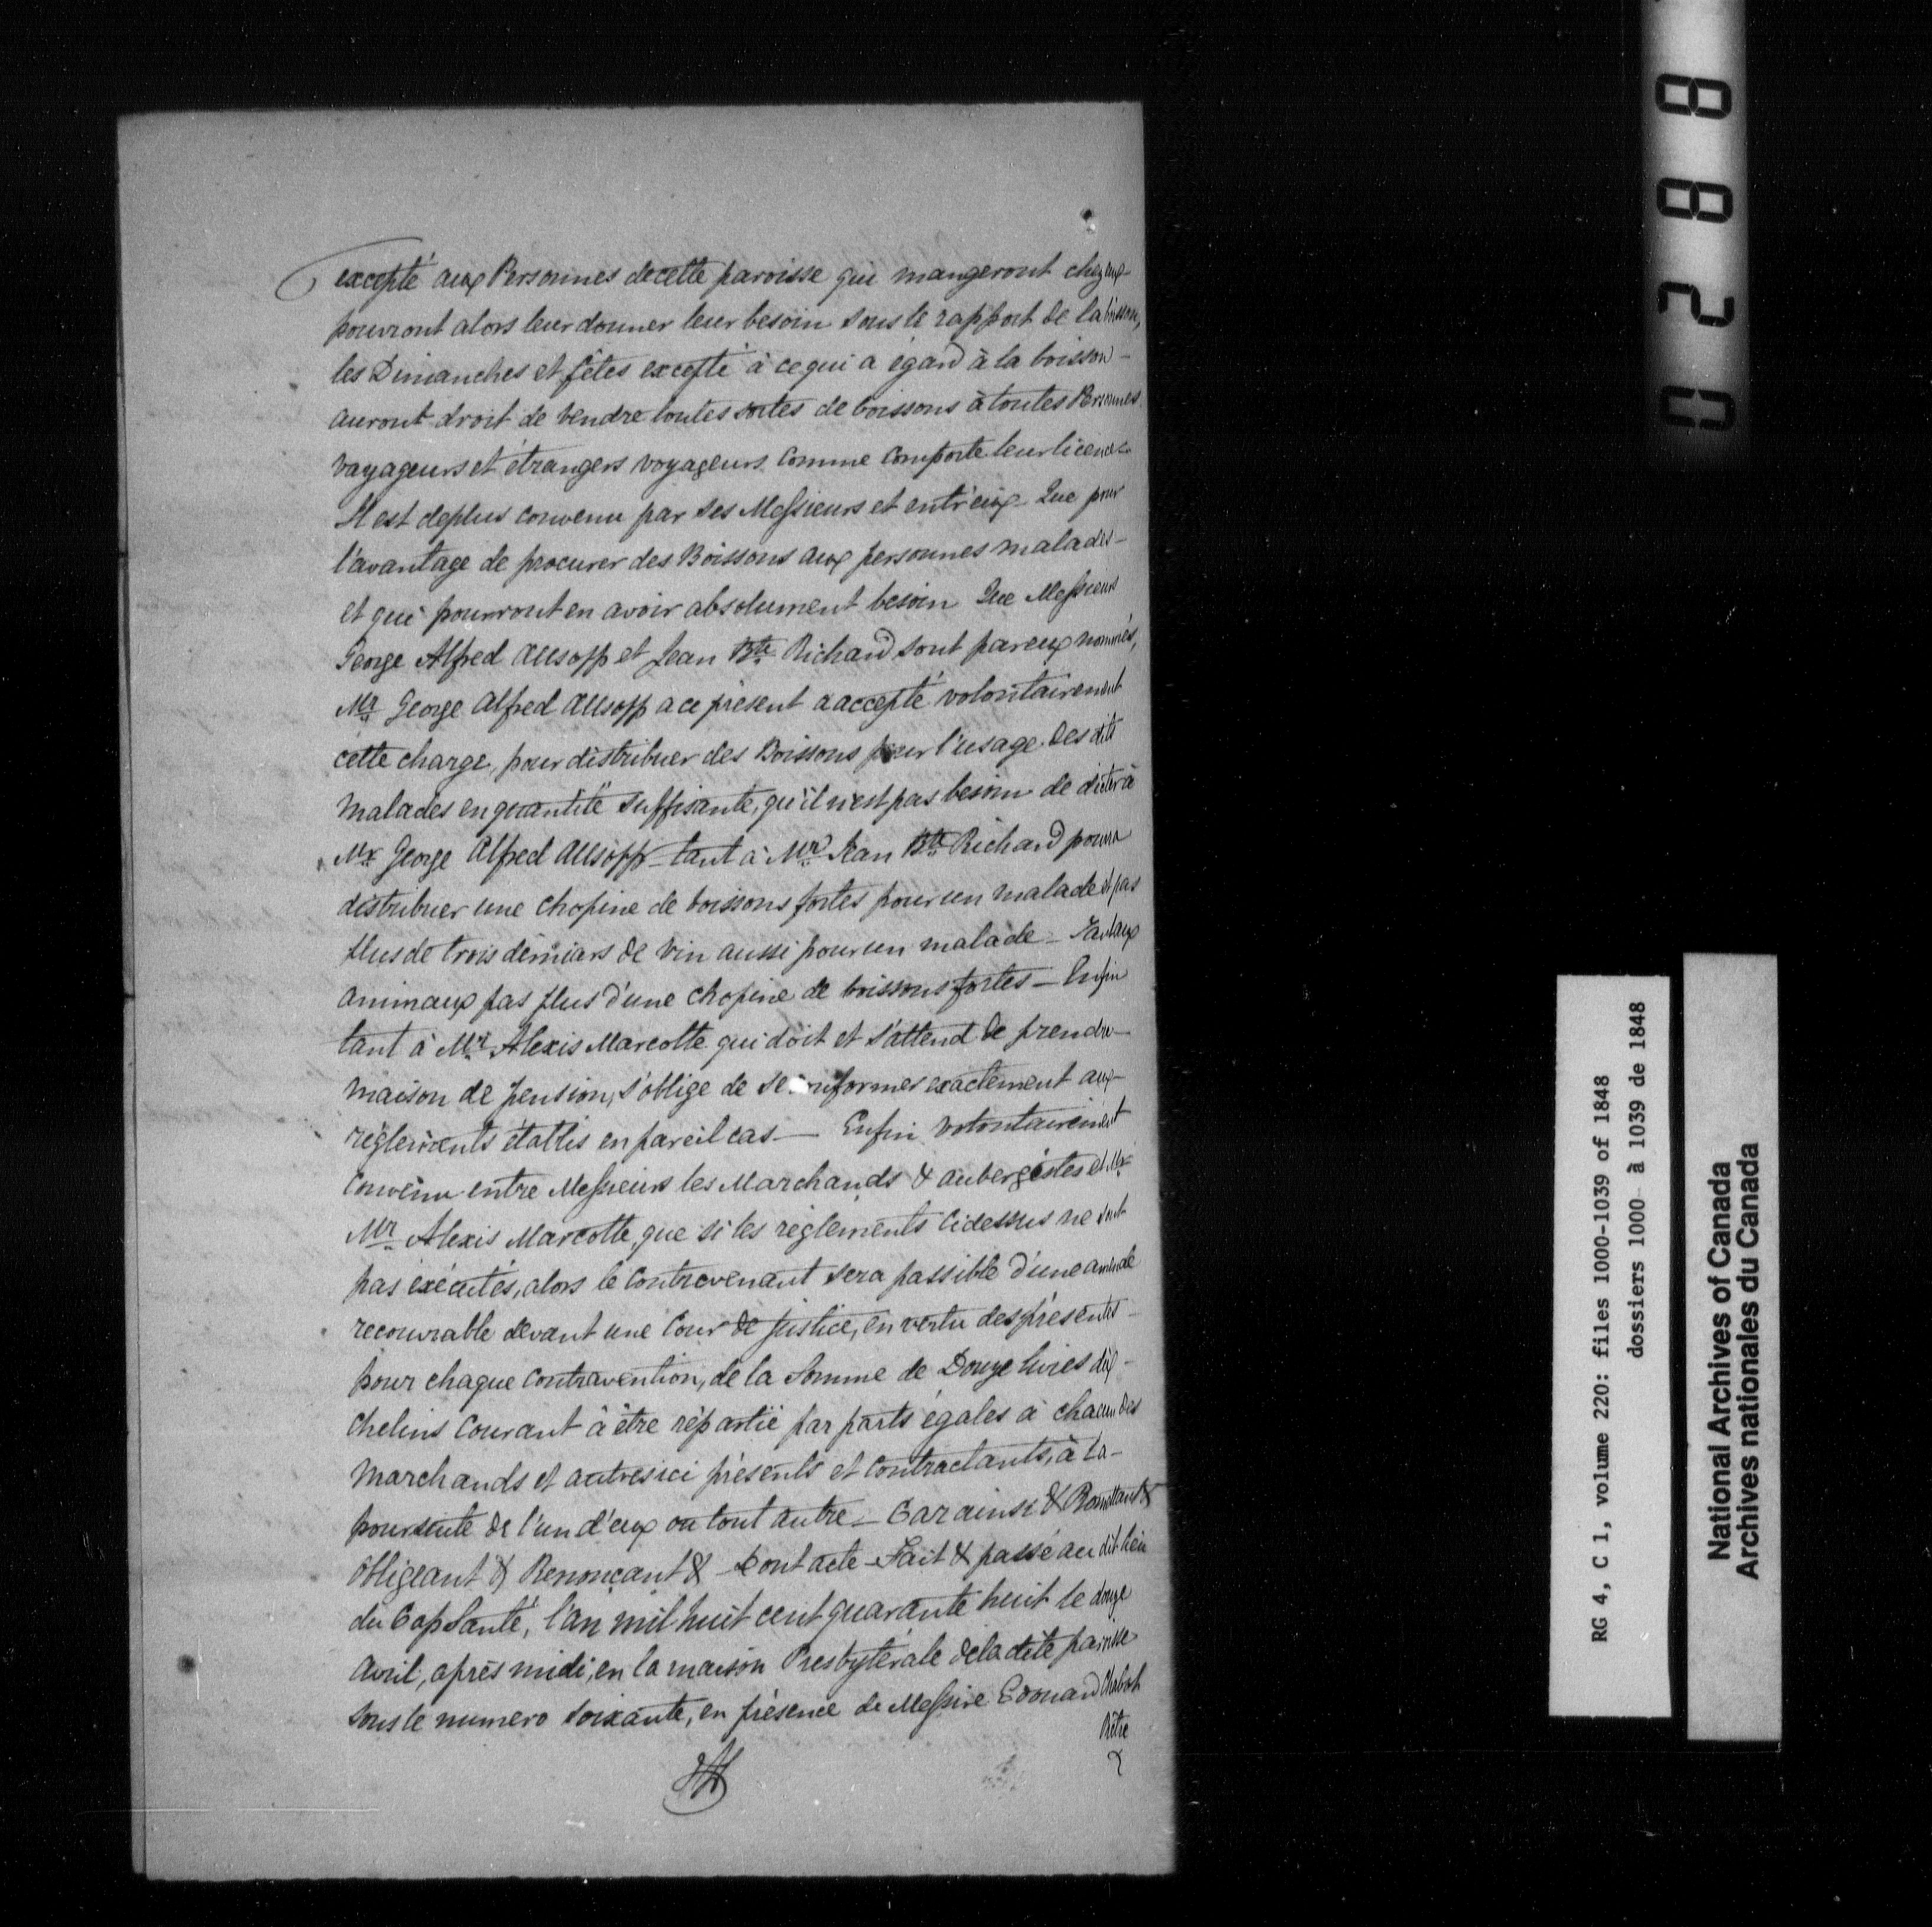 excepté aux Personnes de cette paroisse qui mangeront chez eux
pourront alors leur donner leur besoin sous le rapport de la boisson,
les Dimanches et fêtes excepté à ce qui a égard à la boisson –
auront droit de vendre toutes sortes de boissons à toutes Personnes
vayageurs et étrangers voyageurs comme comporte leur licence
Il est deplus convenu par ses Messieurs et entr'eux Que pour
l'avantage de procurer des Boissons aux personnes malades –
et qui pourront en avoir absolument besoin Que Messieurs
George Alfred Allsopp et Jean Bte Richard sont par eux nommés,
Mr George Alfred Allsopp a ce présent a accepté volontairement
cette charge, pour distribuer des Boissons pour l'usage des dits
malades en quantité suffisante, qu'il n'est pas besoin de dicter à
Mr George Alfred Allsopp tant à Mr Jean Bte Richard pourra
distribuer une chopine de boissons fortes pour un malade et pas
plus de trois demiars de vin aussi pour un malade – Tant aux
animaux pas plus d'une chopine de boissons fortes – Enfin
tant à Mr Alexis Marcotte qui doit et s'attend de prendre
maison de pension, s'oblige de se conformer exactement aux
règlements établis en pareil cas — Enfin volontairement
convenu entre Messieurs les Marchands & aubergistes et Mr
Mr Alexis Marcotte, que si les règlements cidessus ne sont
pas exécutés, alors le contrevenant sera passible d'une amende
recouvrable devant une Cour de justice, en vertu des présentes –
pour chaque contravention, de la Somme de Douze livres dix –
chelins courant à être répartie par parts égales à chacun des
marchands et autres ici présents et contractants, à la –
poursuite de l'un d'eux ou tout autre – Car ainsi & Promettant &
obligeant & Renonçant & Dont acte – Fait & passé au dit lieu
du Cap Santé, l'an mil huit cent quarante huit le douze
avril, après midi, en la maison Presbytérale de la dite paroisse
sous le numero soixante, en présence de Messire Edouard Chabot
Ptre
0288
RG 4, C 1, volume 220: files 1000-1039 of 1848
dossiers 1000 à 1039 de 1848
National Archives of Canada
Archives nationales du Canada